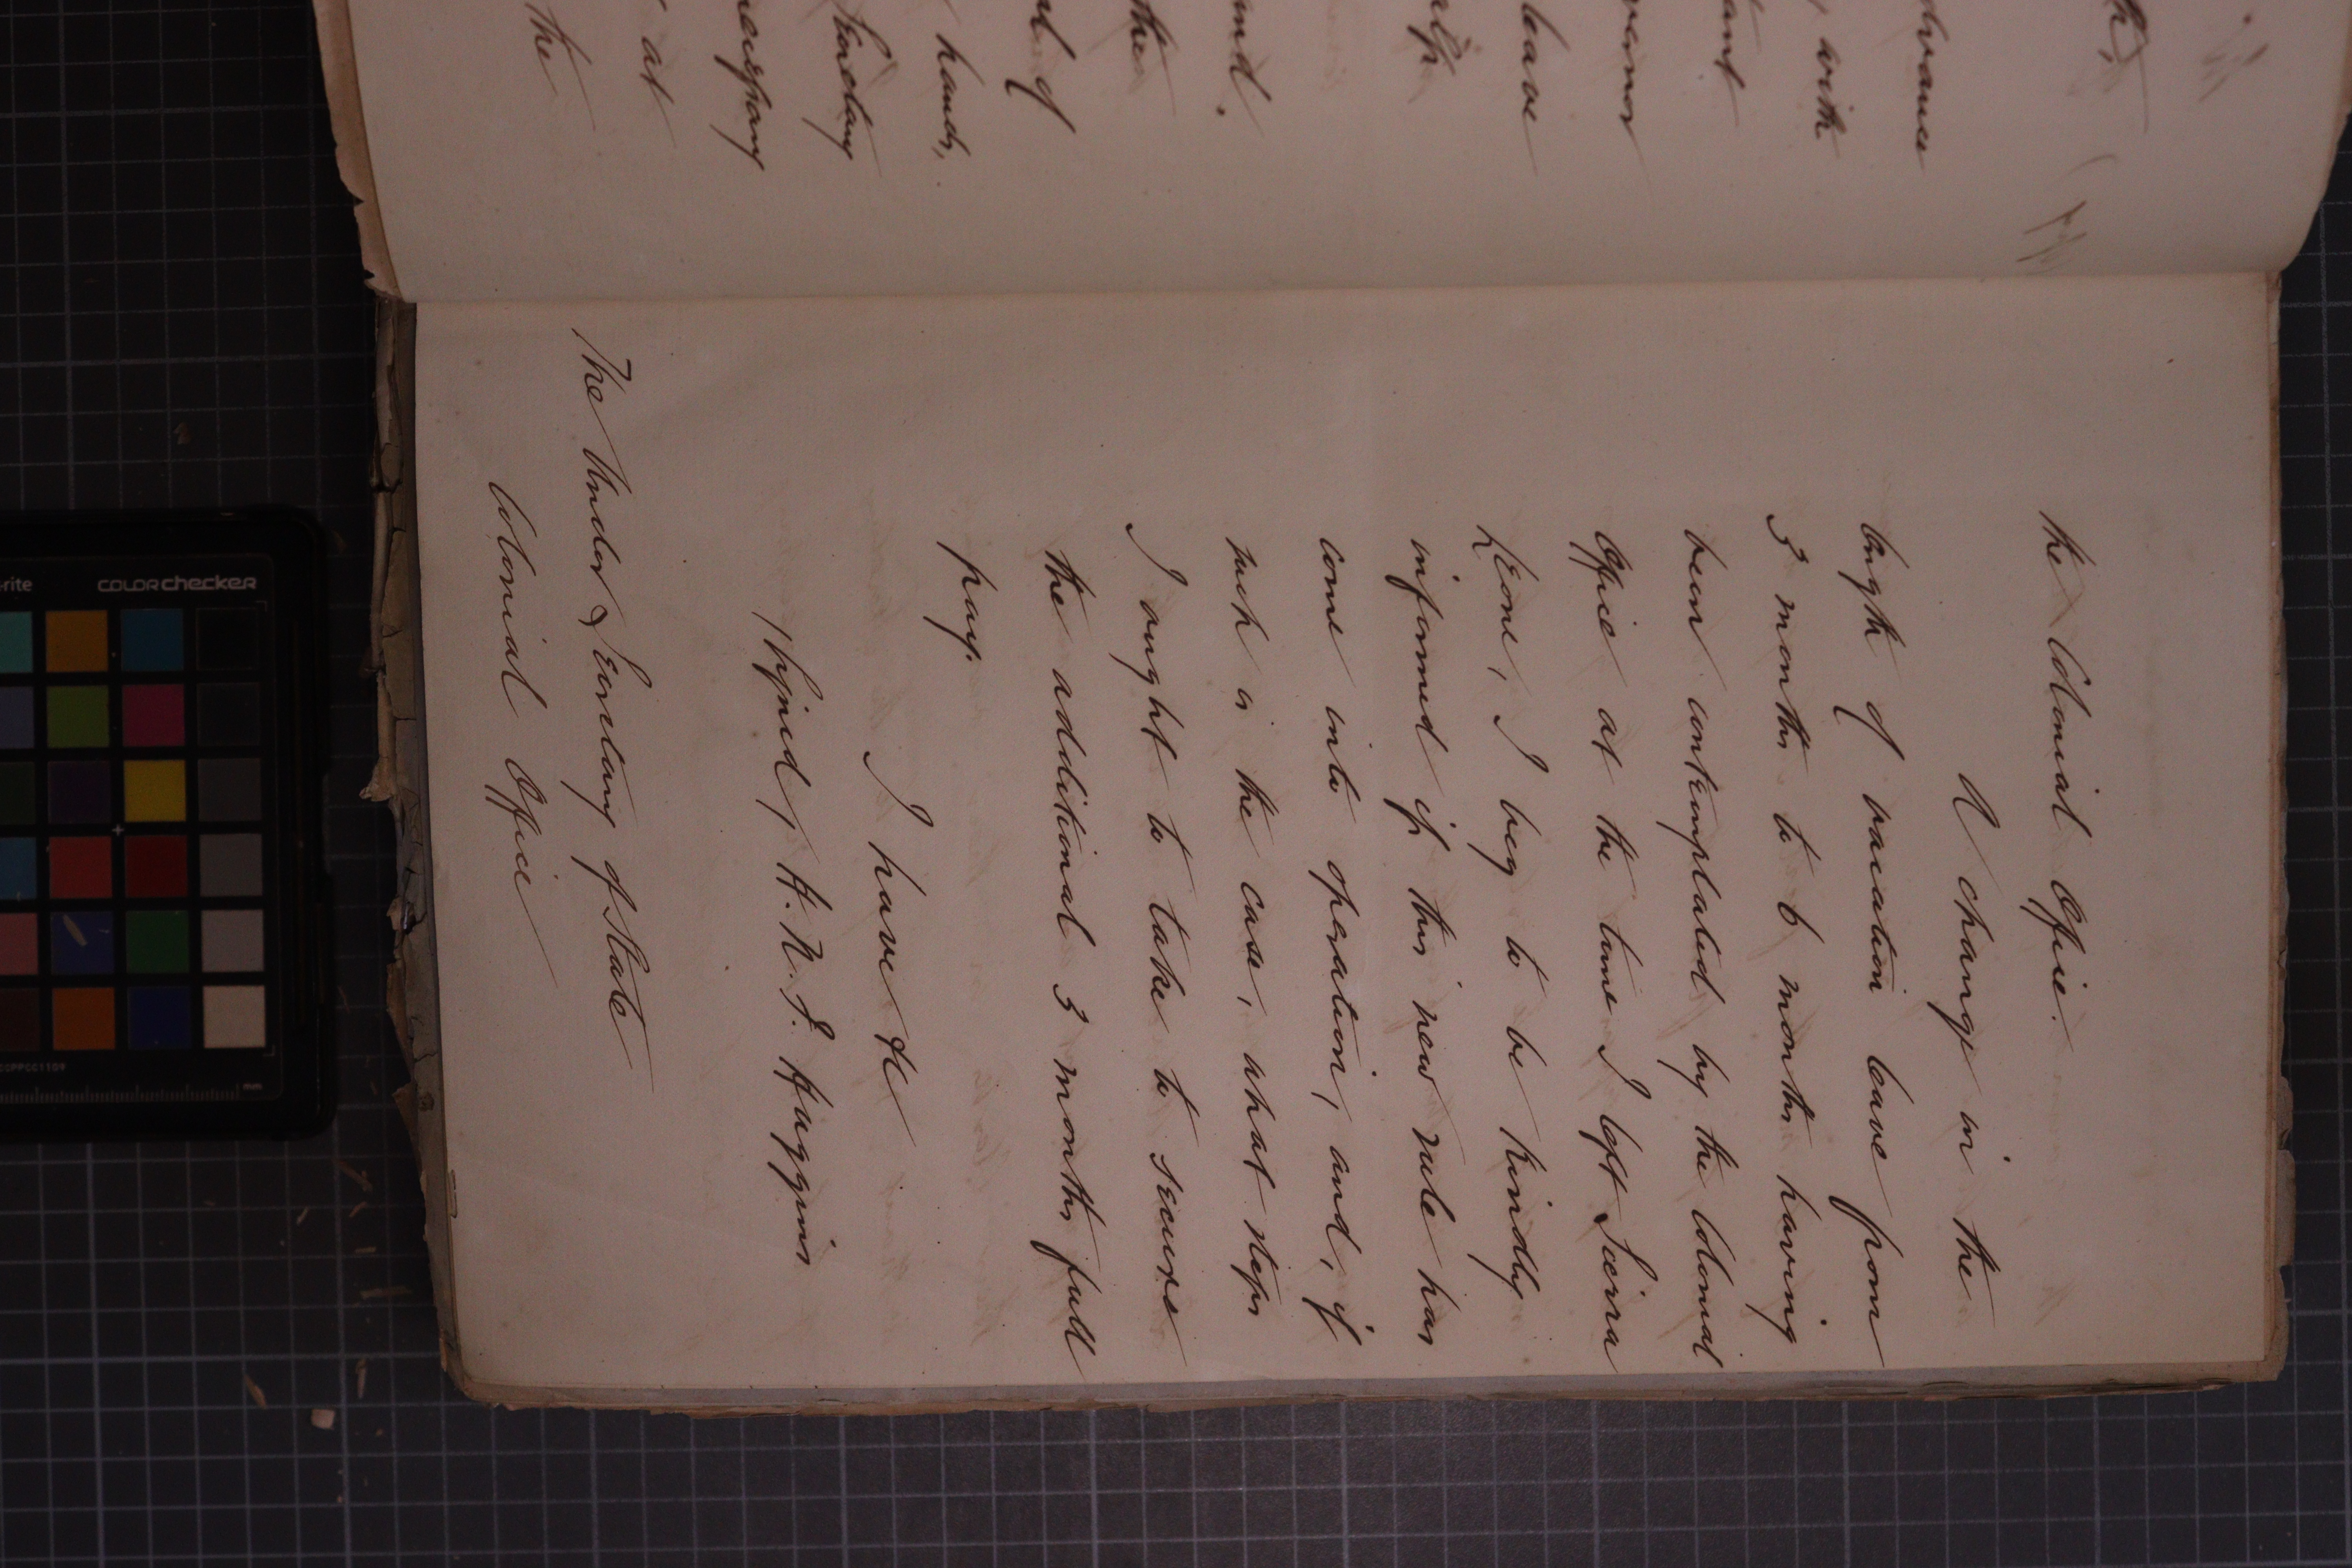 the Colonial Office.
A change in the
length of vacation leave from
3 months to 6 months having
been contemplated by the Colonial
Office at the time I left Sierra
Leone, I beg to be kindly
informed if this new rule has
come into operation, and, if
such is the case, what steps
I ought to take to secure
the additional 3 months full
pay.
I have &c
(Signed) H. N. G. Huggins
The Under Secretary of State
Colonial Office
with
leave
and.
the
of
hands,
Secretary
necessary
at
the
-rite
colorchecker
CCPPCC1159
mm